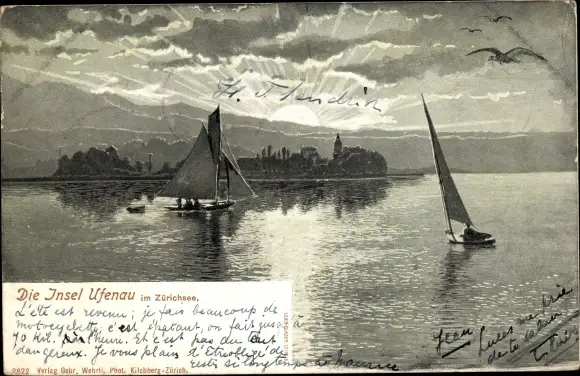 H. Flandrin
Die Insel Ufenau im Zürichsee,
L'été est revenu; je fais beaucoup de
motocyclette, c'est épatant, on fait jusqu'à
70 kil. à l'heure. Et c'est pas du tout
dangereux. Je vous plains d'être obligé de
rester si longtemps à
Jean
te prie
de te
2822 Verlag Gebr. Wehrli, Phot. Kilchberg-Zürich.